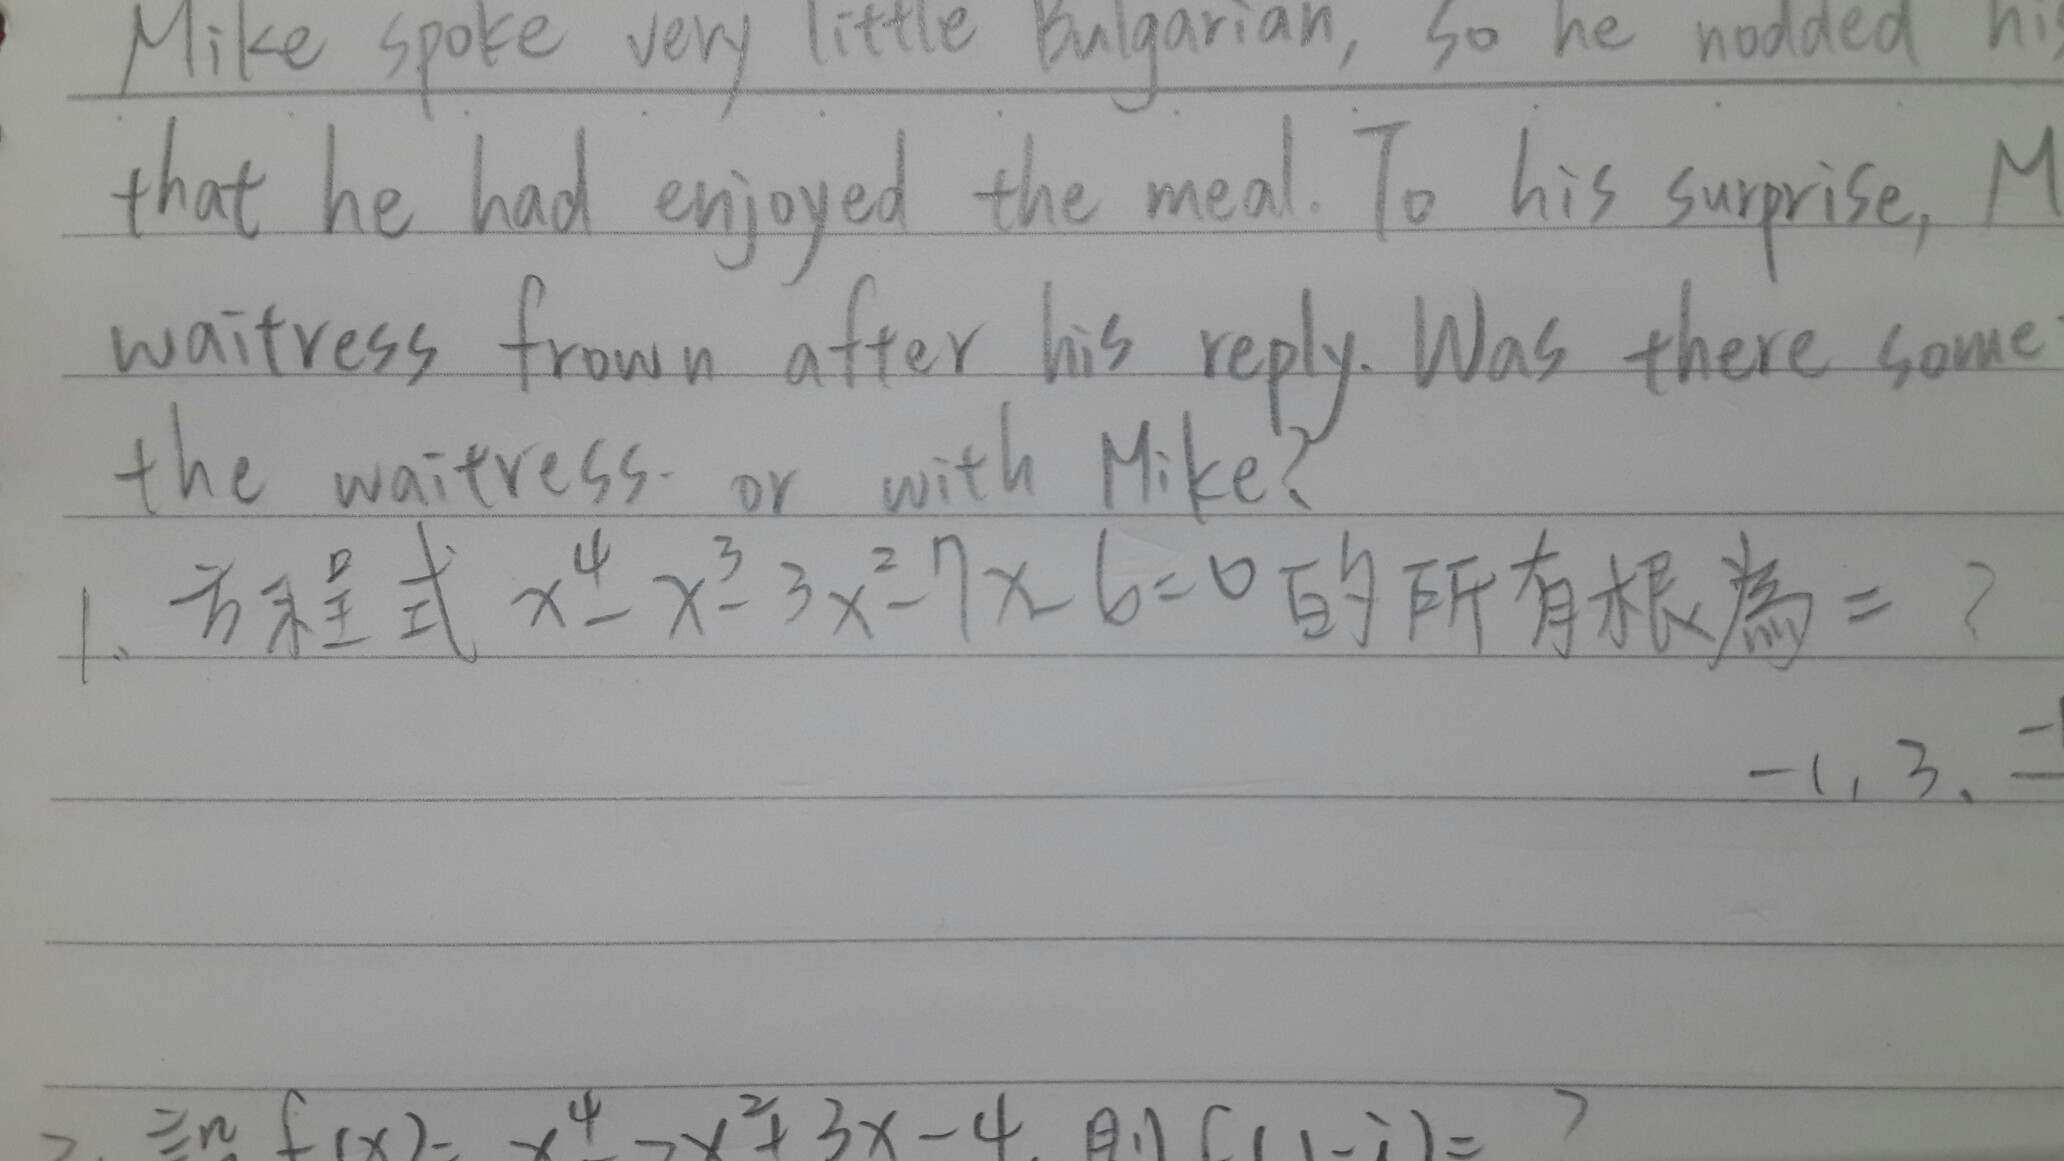 Mike spoke very little Bulgarian, so he nodded his
that he had enjoyed the meal. To his surprise, M
waitress frown after his reply. Was there some
the waitress or with Mike?
1. 方程式 x⁴-x³-3x²-7x-6=0的所有根為=?
-1, 3、
f(x)= x⁴-2x²+3x-4, 則f(1-i)=?